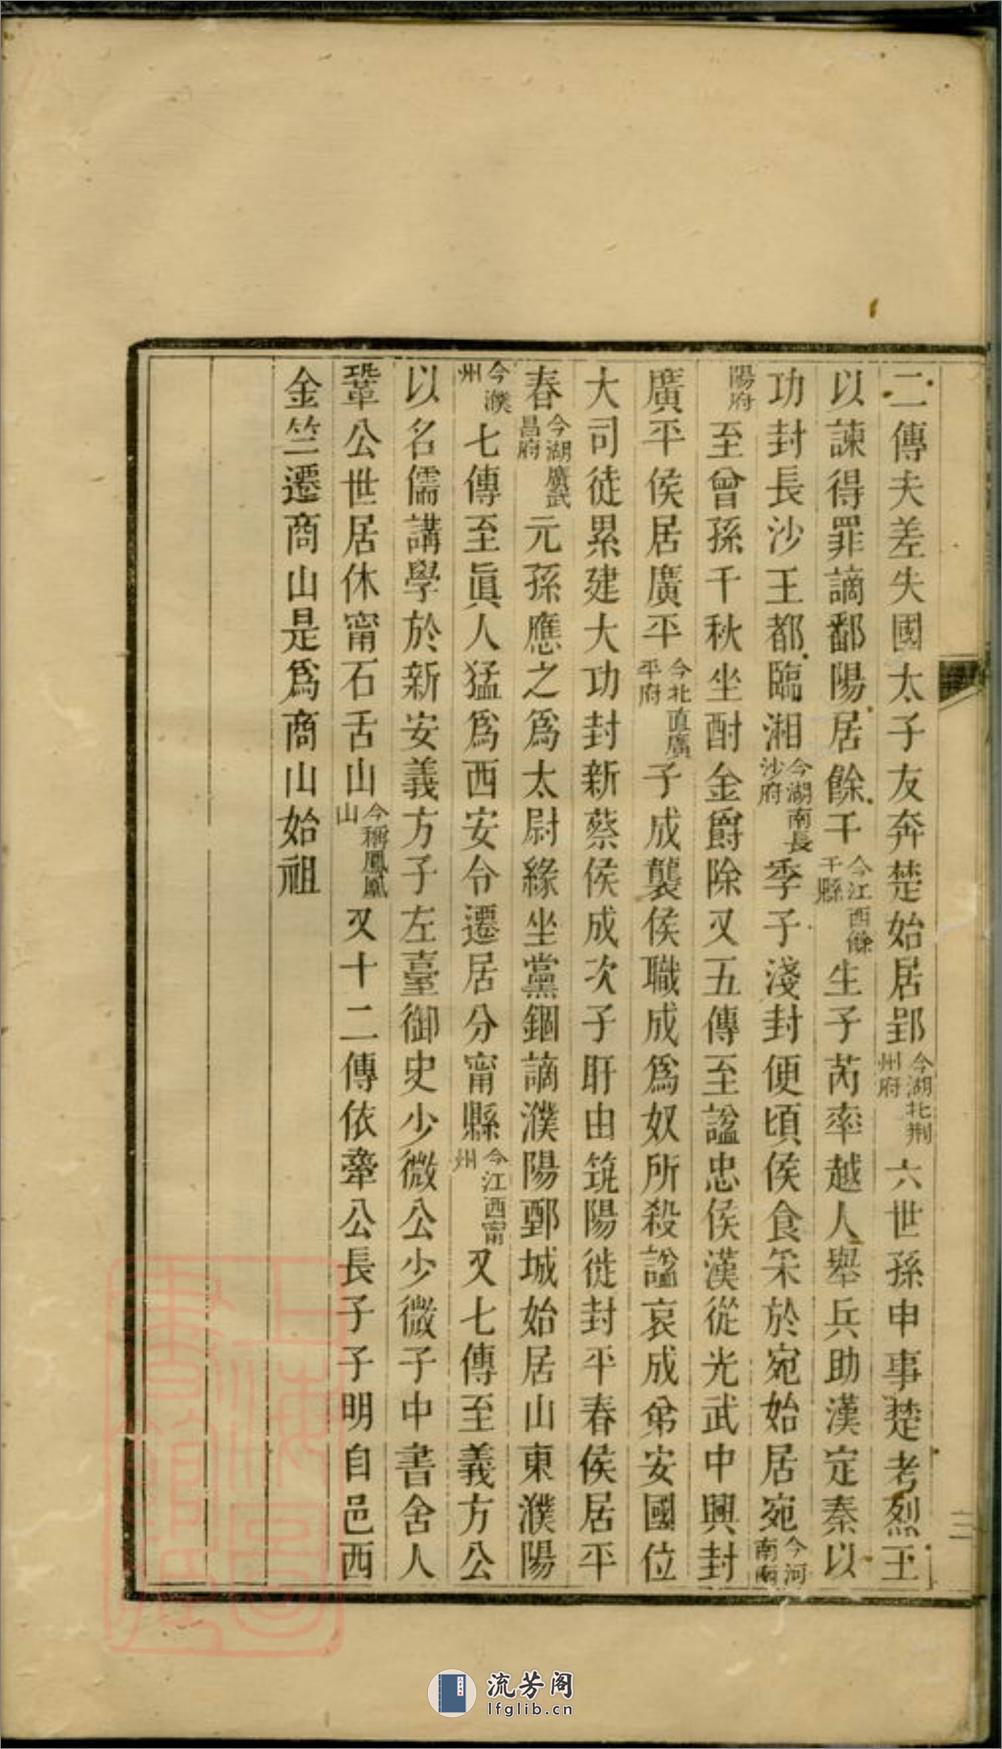 二傳夫差失國太子友奔楚始居郢今湖北荆州府六世孫申事楚考烈王
以諫得罪謫鄱陽居餘干今江西餘干縣生子芮率越人舉兵助漢定秦以
功封長沙王都臨湘今湖南長沙府季子淺封便頃侯食采於宛始居宛今河南南
陽府至曾孫千秋坐酎金爵除又五傳至諡忠侯漢從光武中興封
廣平侯居廣平今北直廣平府子成襲侯職成爲奴所殺諡哀成弟安國位
大司徒累建大功封新蔡侯成次子盱由筑陽徙封平春侯居平
春今湖廣武昌府元孫應之爲太尉緣坐黨錮謫濮陽鄄城始居山東濮陽
今濮州七傳至眞人猛爲西安令遷居分甯縣今江西甯州又七傳至義方公
以名儒講學於新安義方子左臺御史少微公少微子中書舍人
鞏公世居休甯石舌山今稱鳳凰山又十二傳依犖公長子子明自邑西
金竺遷商山是爲商山始祖
三
上海圖書館藏
流芳阁
lfglib.cn